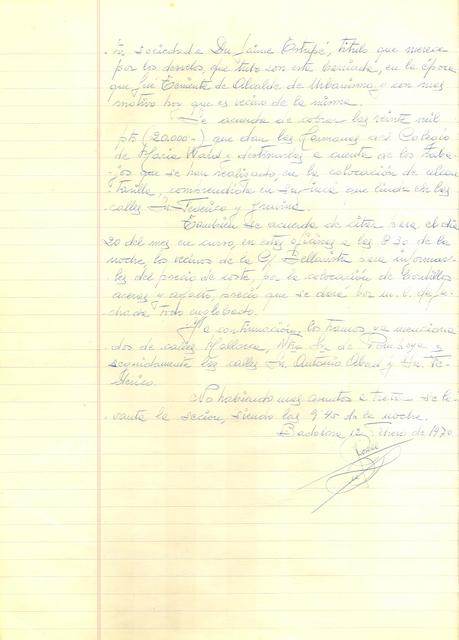 ta sociedad a Dn Jaime Estupé, titulo que merece
por los desvelos, que tubo con esta barriada, en la época
que fué Teniente de Alcalde de Urbanismo y con mas
motivo hoy que es vecino de la misma.
Se acuerda de cobrar las veinte mil
pts (20.000-) que dan las Hermanas del Colegio
de Maria Ward y destinarlas a cuenta de los traba-
jos que se han realizado, en la colocación de alcan
tarilla, comprendida en su finca que linda con las
calles Sn Federico y Gravina.
También se acuerda de citar para el dia
20 del mes en curso, en estas oficinas a las 8.30 de la
noche, los vecinos de la C/ Bellavista para informar-
les del precio de coste, por la colocación de bordillos
aceras y asfalto, precio que se dará por m. l. de fa-
chada todo englobado.
A continuación, los tramos ya menciona
dos de calles Mallorca, Nra Sra de y
seguidamente las calles Sn. Antonio Abad y Sn. Fe-
derico.
No habiendo mas asuntos a tratar se le-
vanta la sesion, siendo las 9'45 de la noche.
Badalona, 12 Enero de 1970